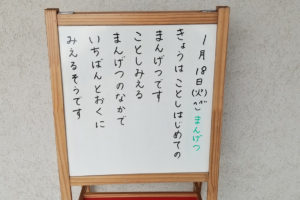 1月18日(火) まんげつ
きょうはことしはじめての
まんげつです
ことしみえる
まんげつのなかで
いちばんとおくに
みえるそうです